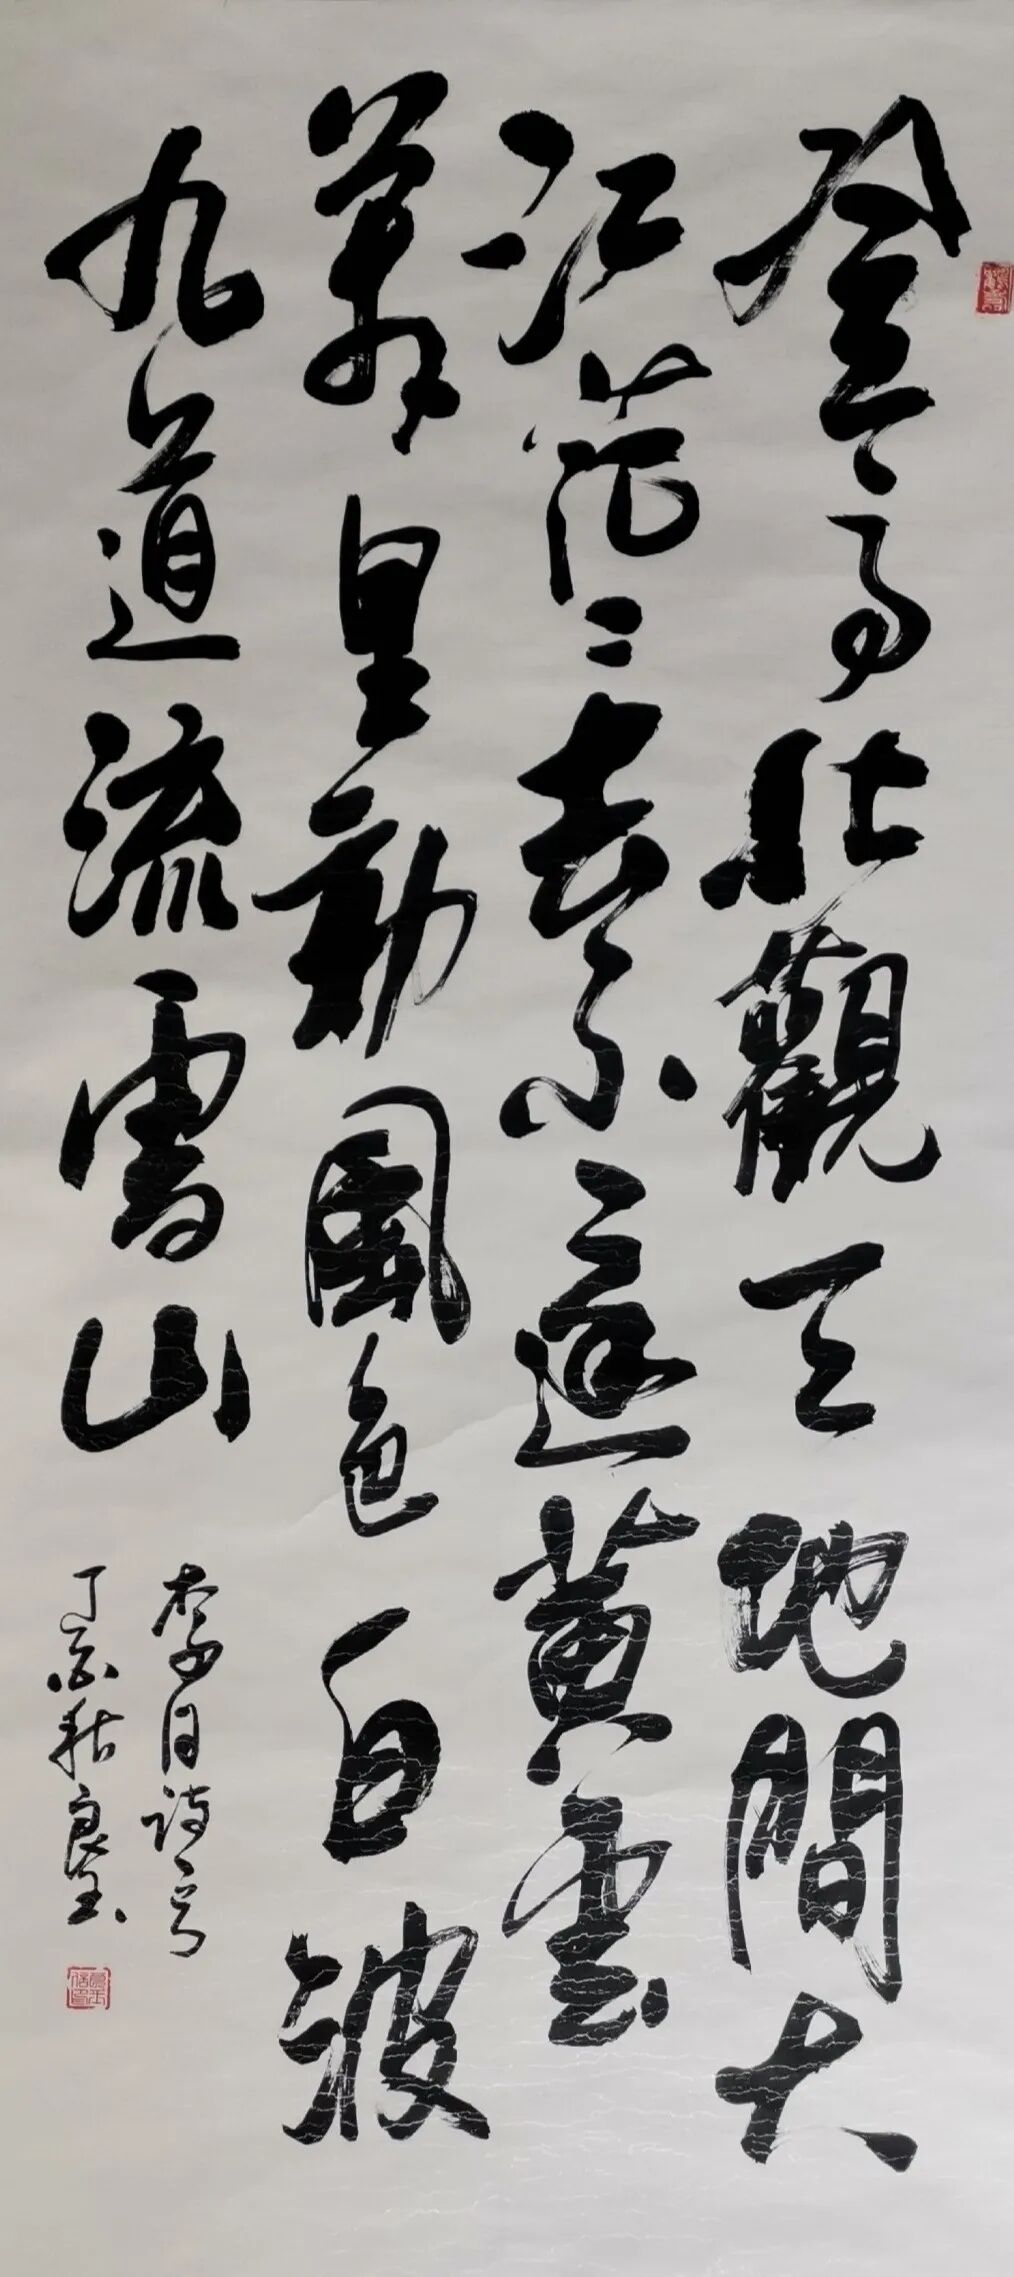 登高壯觀天地間大
江茫〻去不還黃雲
萬里動風色白波
九道流雪山
李白詩句
丁酉秋良玉